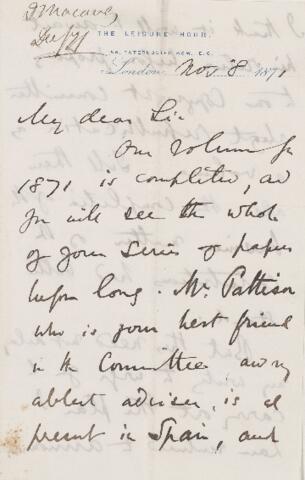 THE LEISURE HOUR.
56, PATERNOSTER ROW, E.C.
London, Nov 8 1871
My dear Sir
Our volume for
1871 is completed, and
you will see the whole
of your series of papers
before long. Mr. Pattison
who is your best friend
in the Committee and my
ablest adviser, is at
present in Spain, and